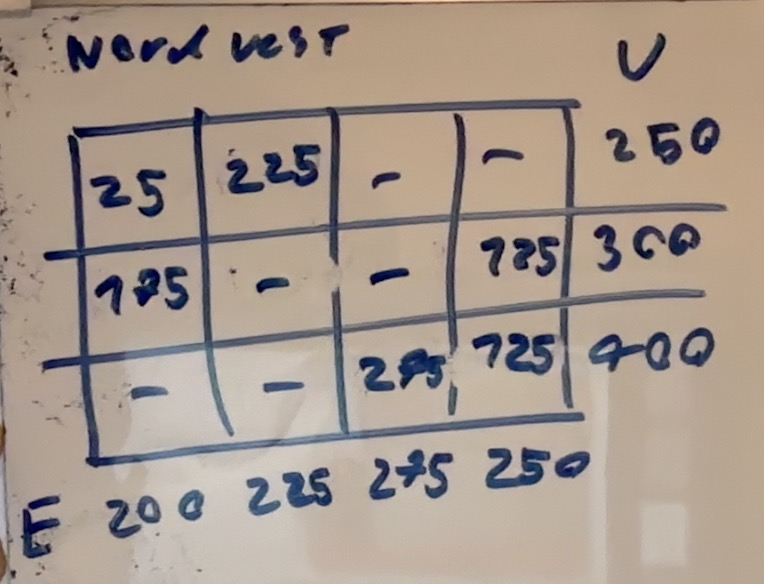 Nord vest U
25 225 - - 250
175 - - 125 300
- - 275 125 400
E 200 225 275 250